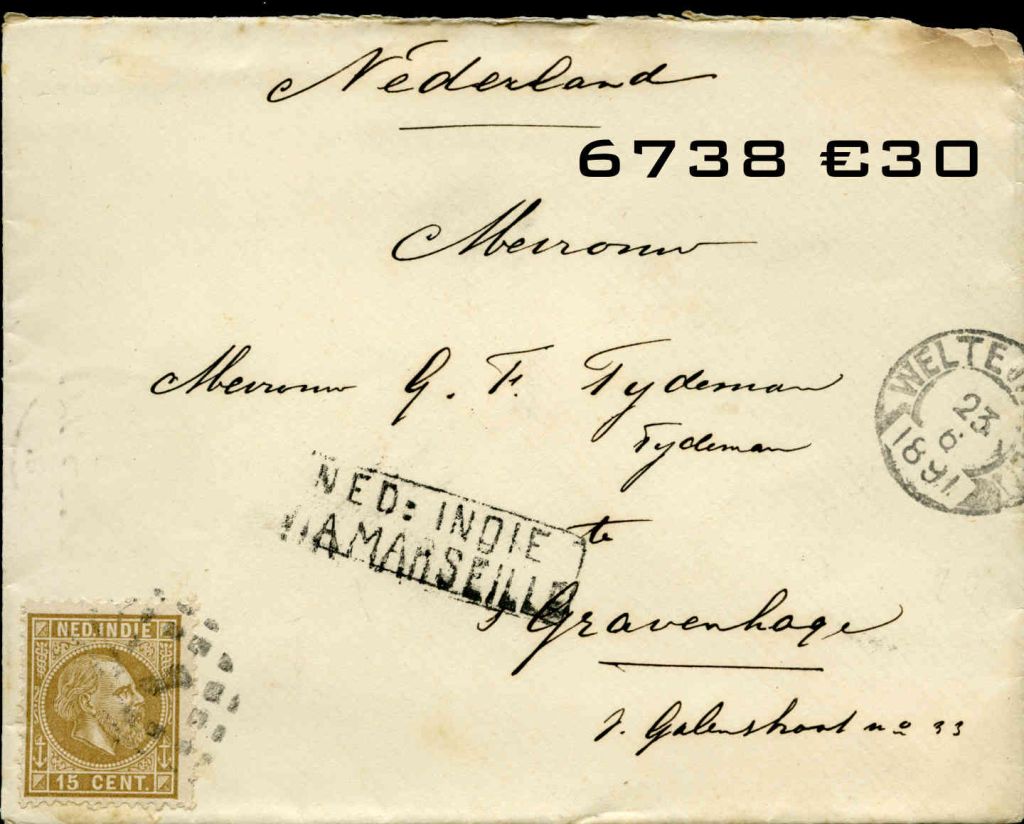 Nederland
6738 €30
Mevrouw
Mevrouw G. F. Tydeman
Tydeman
WELTE
23
6
1891
NED: INDIE
VIA MARSEILLE
te
s Gravenhage
NED. INDIE
v. Galenstraat no 33
15 CENT.